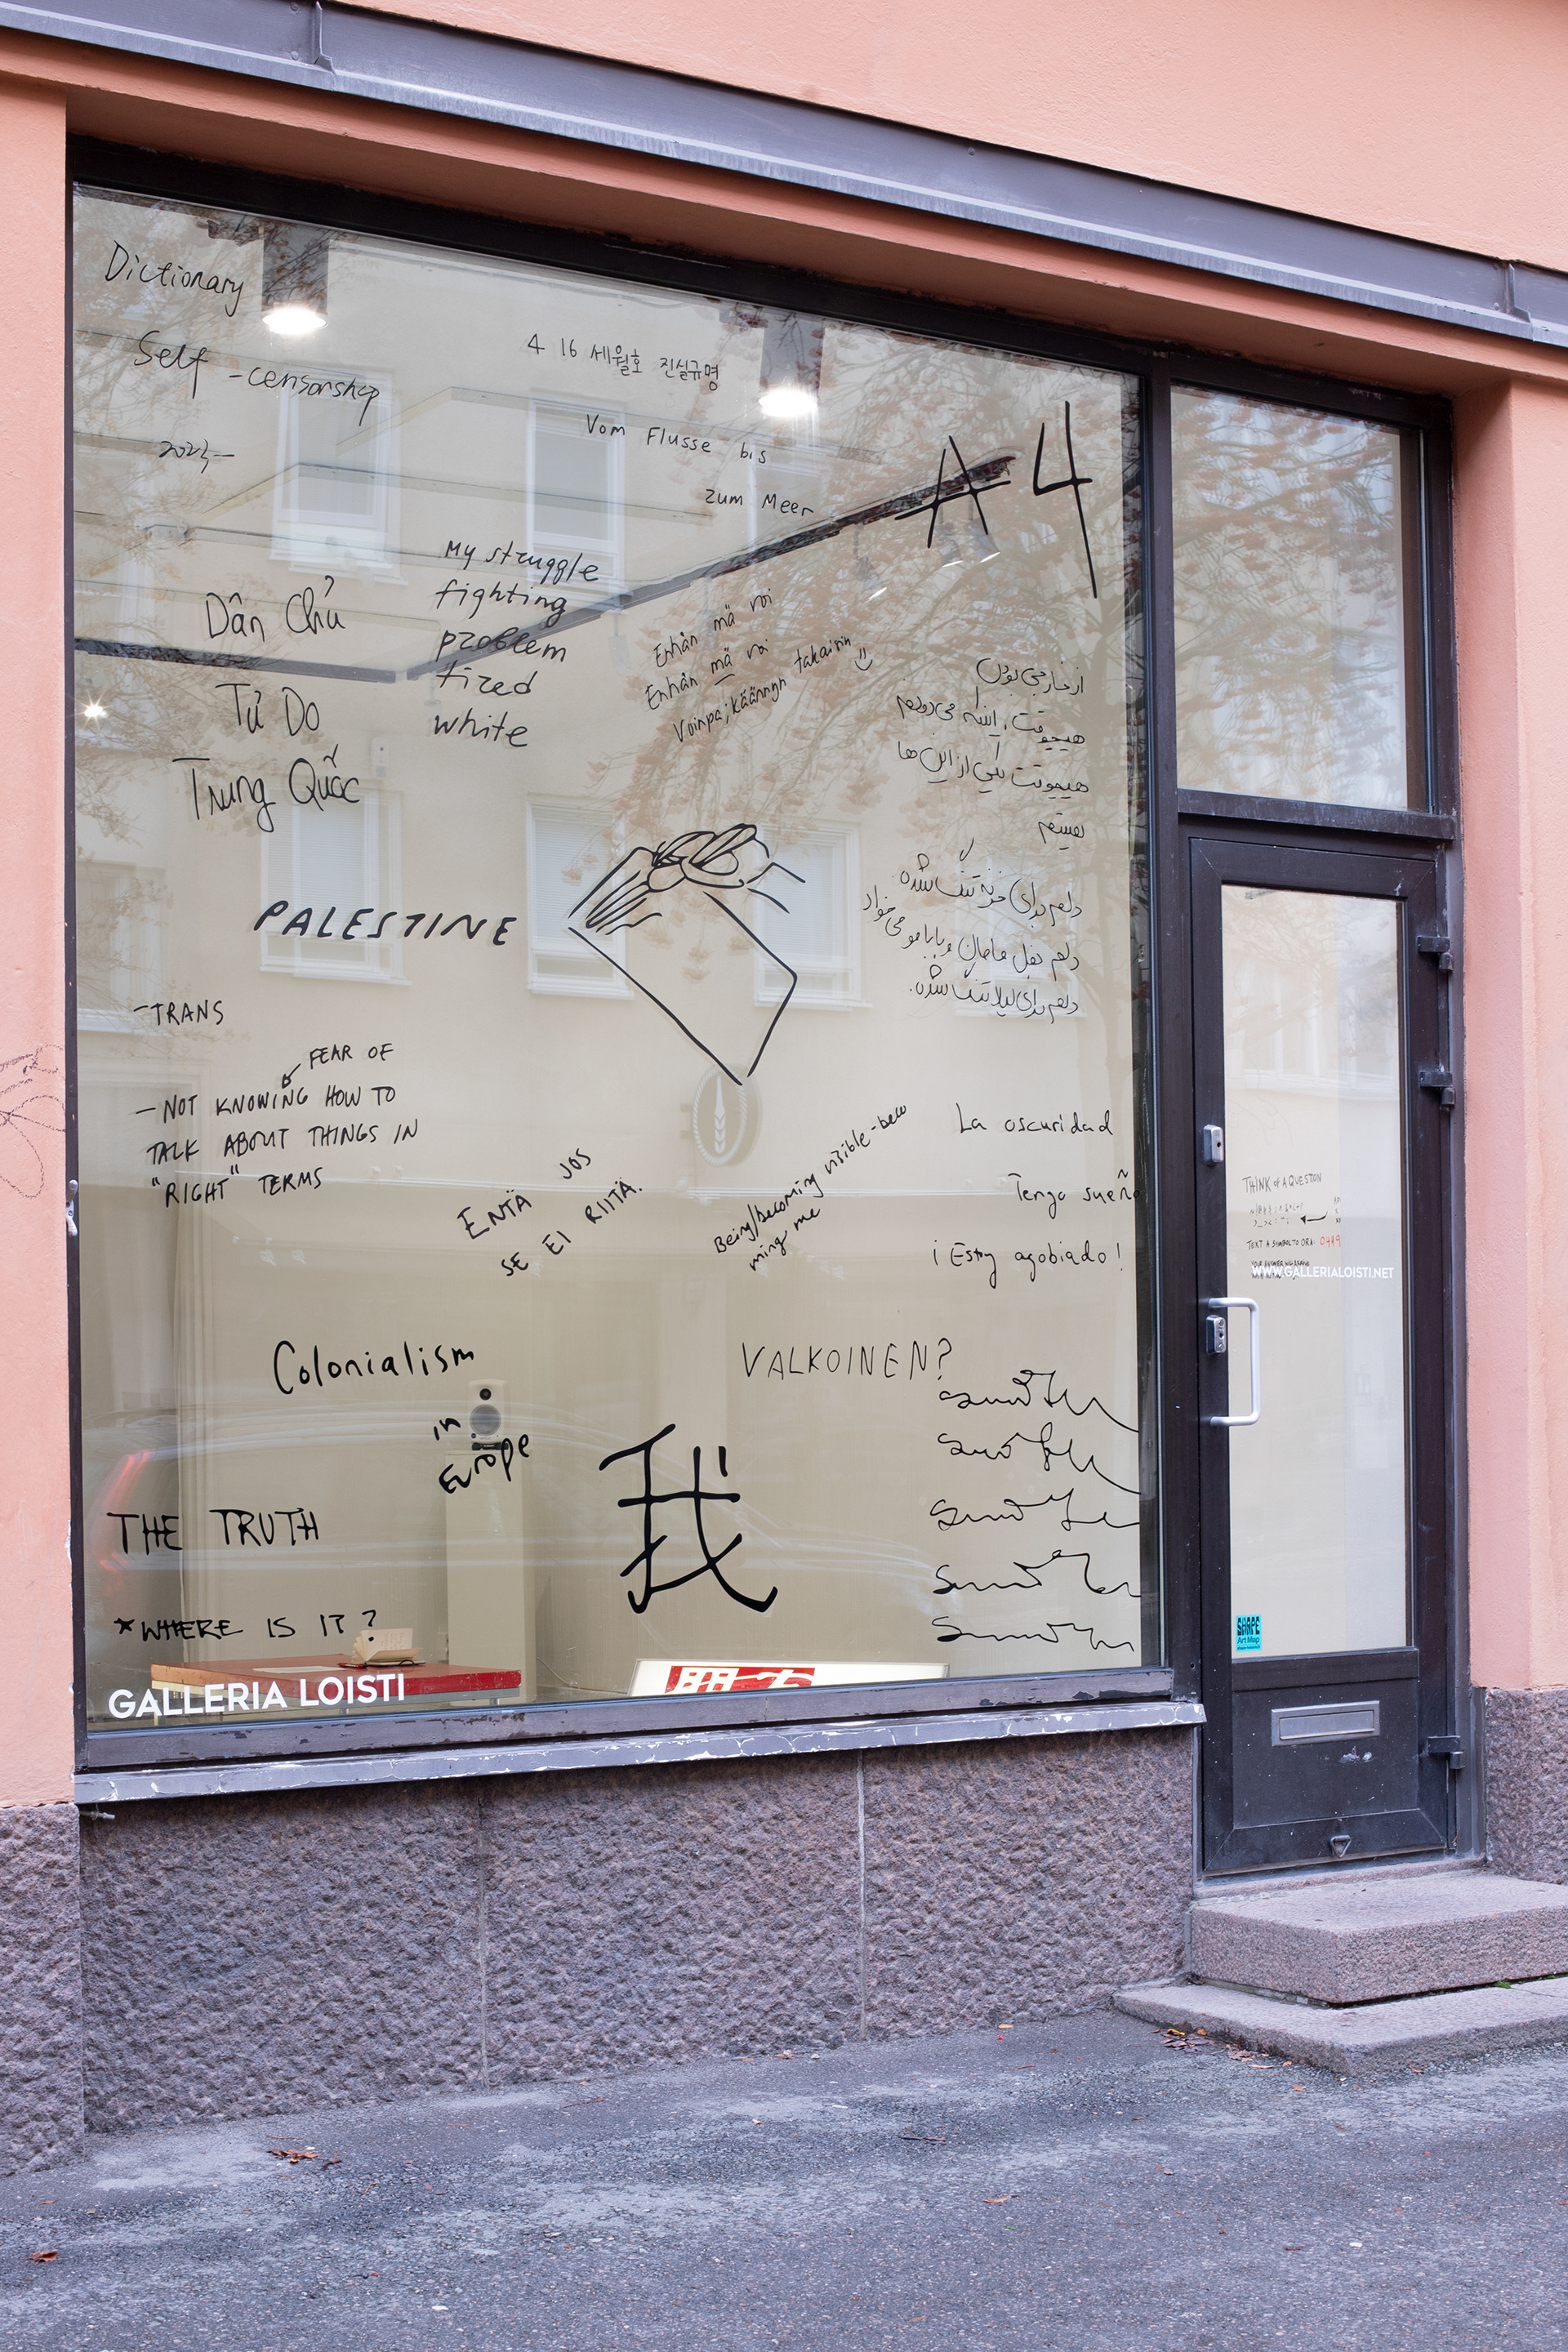 Dictionary
Self -censorship
2023-
4 16 세월호 진실규명
Vom Flusse bis
zum Meer
A4
My struggle
fighting
problem
tired
white
Dân Chủ
Tự Do
Trung Quốc
Enhän mä voi
Enhän mä voi
takaisin
از خارجی بودن
هیچوقت
هیچوقت یکی از این ها
نیستم
دلم برای خونه تنگ شده
دلم بغل مامان و بابامو می‌خواد
دلم برای لیلا تنگ شده.
PALESTINE
-TRANS
FEAR OF
-NOT KNOWING HOW TO
TALK ABOUT THINGS IN
"RIGHT" TERMS
ENTÄ JOS
SE EI RIITÄ.
Being/becoming visible-beco
ming me
La oscuridad
Tengo sueño
¡Estoy agobiado!
Colonialism
in
Europe
VALKOINEN?
我
THE TRUTH
*WHERE IS IT?
GALLERIA LOISTI
THINK of A QUESTION
TEXT A SYMBOL TO ORA: 0449
WWW.GALLERIALOISTI.NET
SHAPE
Art Map